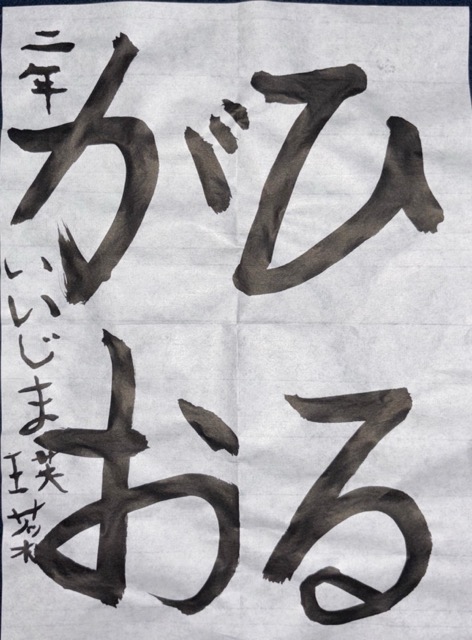 ひる
がお
二年 いいじま瑛菜